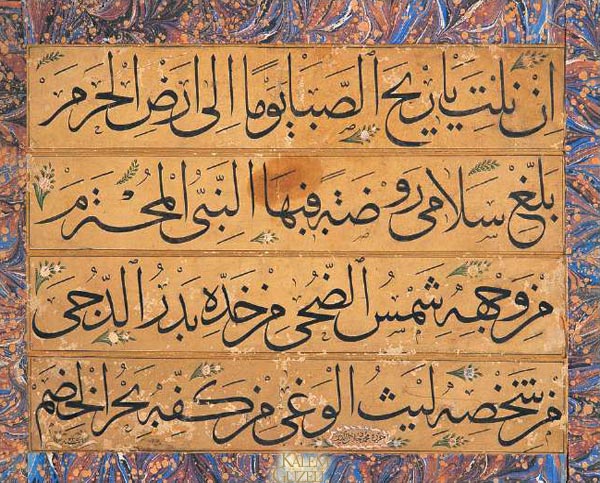 ان نلت يا ريح الصبا يوما الى ارض الحرم
بلغ سلامى روضة فيها النبى المحترم
من وجهه شمس الضحى من خده بدر الدجى
من شخصه ليث الوغى من كفه بحر الخضم
KALEM
GÜZELİ